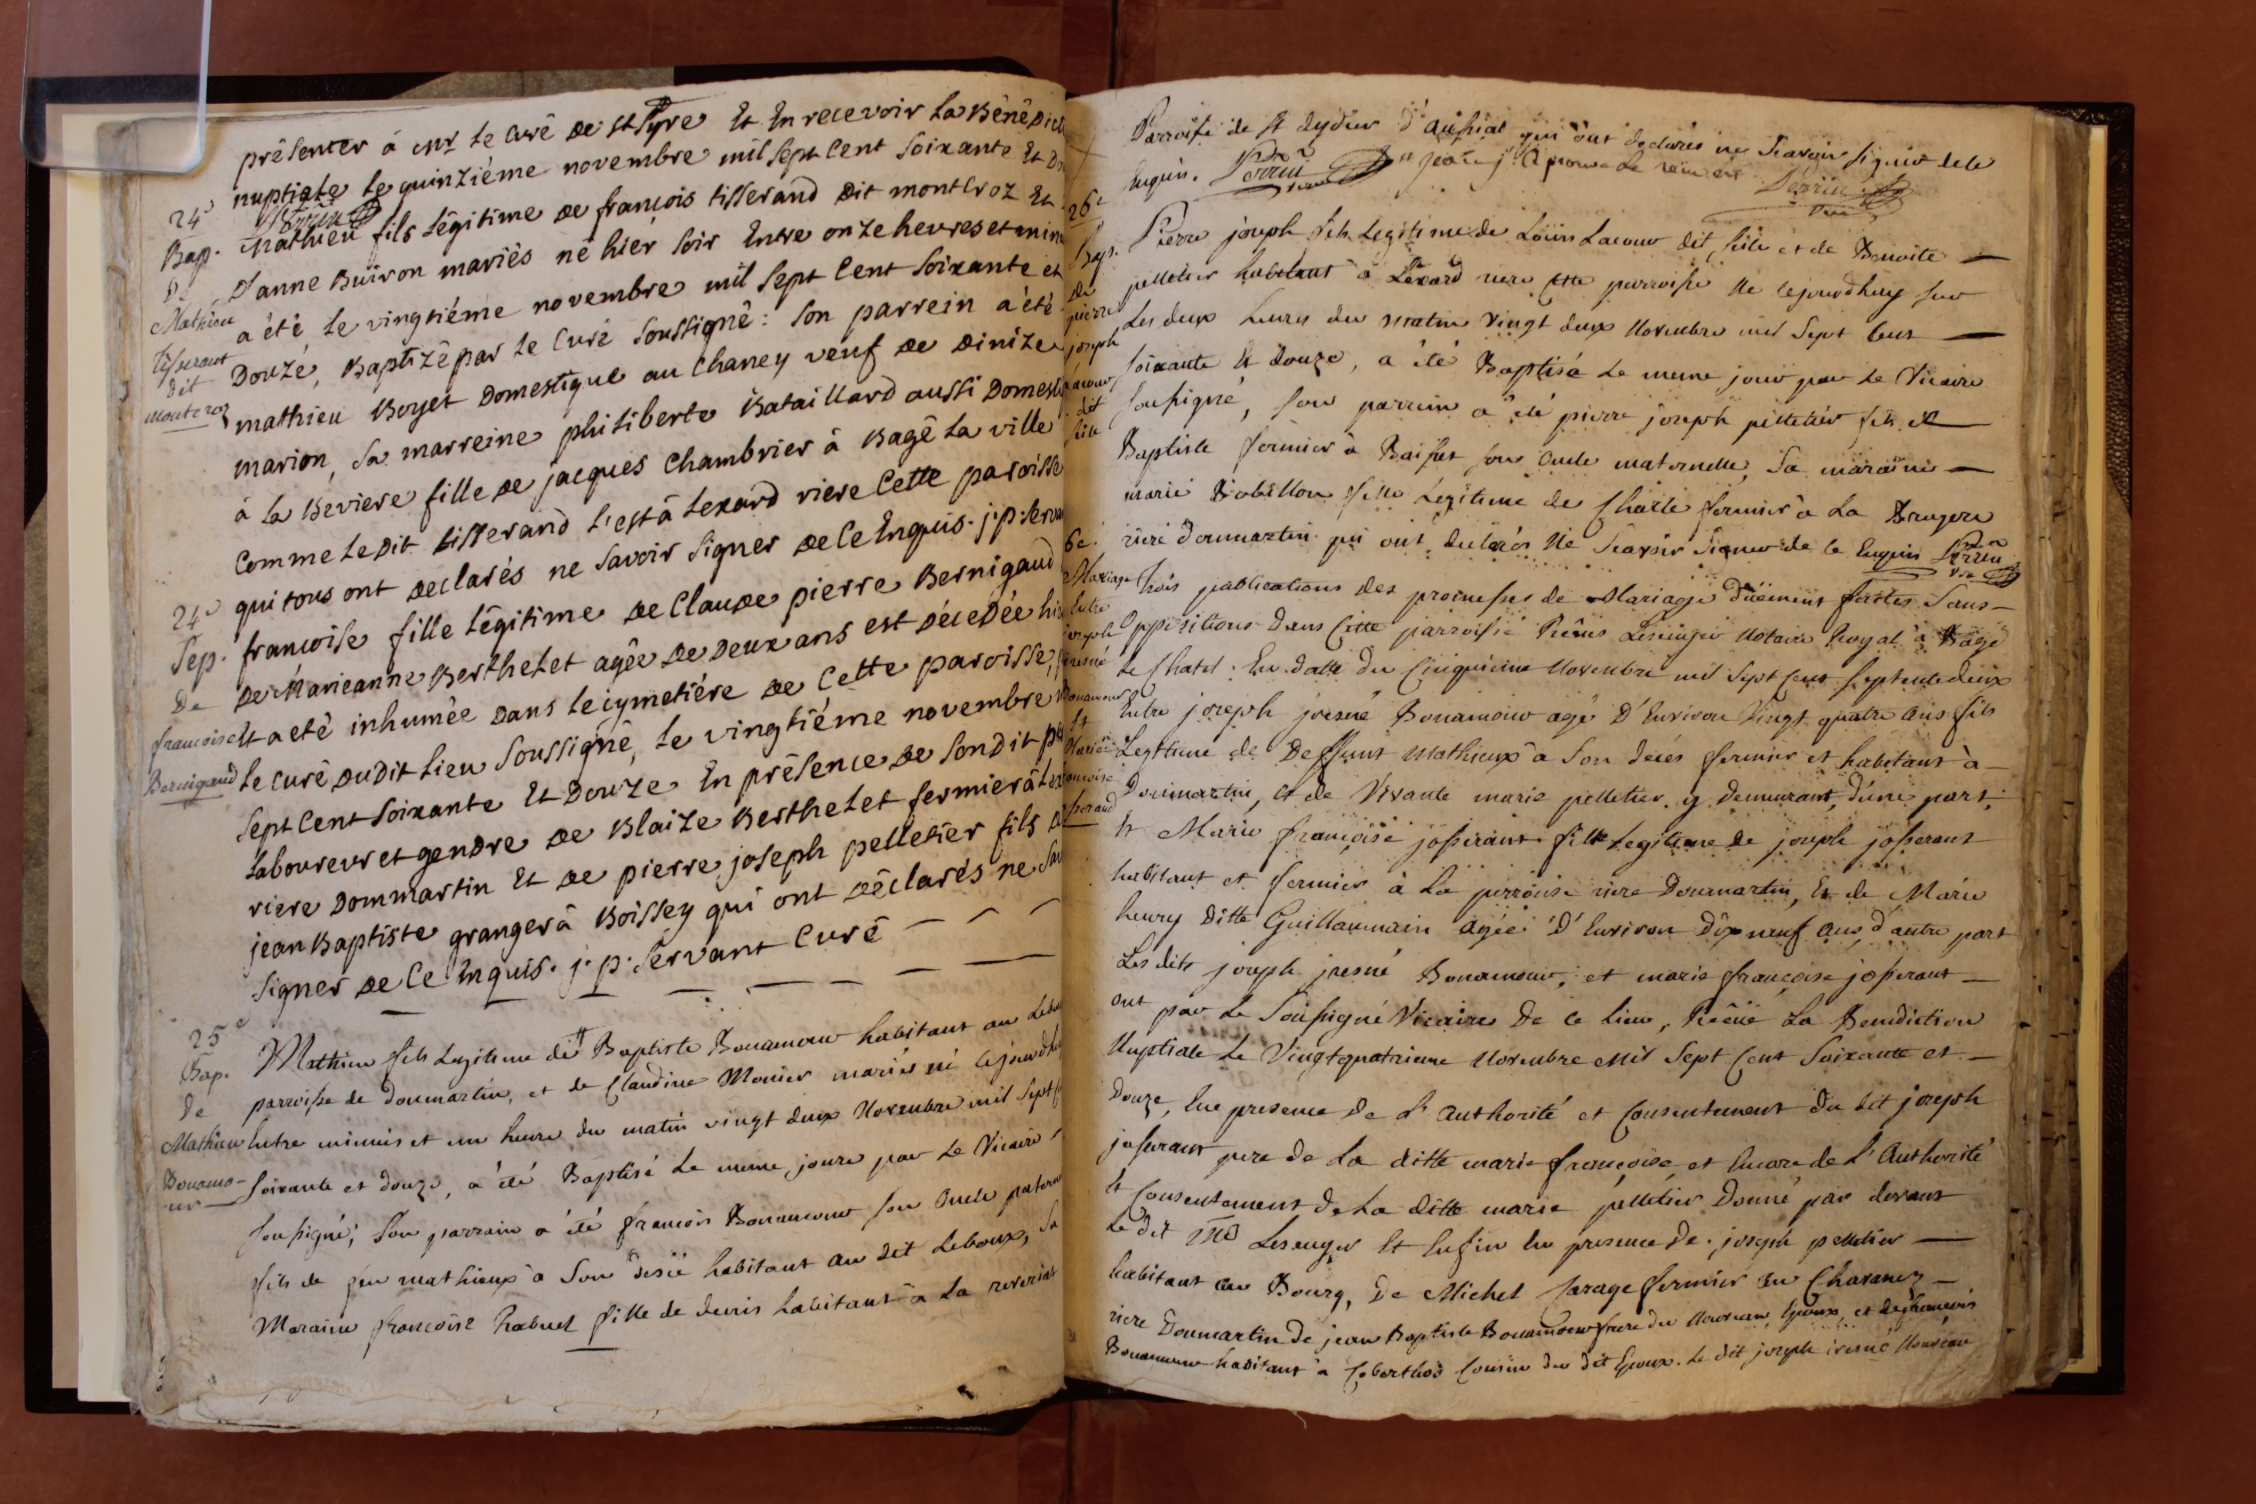 présenter à mr le curé de st Cyre Et En recevoir la Bénédict
nuptiale le quinziéme novembre mil sept Cent soixante Et Do
Perrin
24e
Bap.
De
Mathieu
tisserant
dit
montcroz
Mathieu fils légitime de françois tisserand Dit montcroz Et
D'anne Buiron mariés né hiér soir Entre onze heures et min
a été, le vingtiéme novembre mil sept Cent soixante et
Douze, Baptizé par le Curé soussigné: son parrein a été
mathieu Boyet Domestique au Chaney veuf de Dinize
marion, sa marreine philiberte Bataillard aussi Domesti
à la Beviere fille de jacques Chambrier à Bagé la ville
Comme ledit tisserand l'est à Lexard riere Cette paroisse
qui tous ont déclarés ne savoir signer de Ce Enquis. j. p. serva
24e
Sep.
De
francoise
Bernigaud
francoise fille légitime de Claude pierre Bernigaud
de Marieanne Berthelet agée de Deux ans est décedée hi
Et a eté inhumée dans le cymetiére de Cette paroisse, p
le curé dudit lieu soussigné, le vingtiéme novembre
sept Cent soixante Et Douze En présence de son dit p
laboureur et gendre de Blaize Berthelet fermier à Lex
riere Dommartin Et de pierre joseph pelletier fils d
jean Baptiste granger à Boissey qui ont déclarés ne sa
signer de Ce Enquis. j. p. servant Curé
25e
Bap.
de
Mathieu
Bonamo-
ur
Mathieu fils Legitime de Baptiste Bonamour habitant au Lebou
parroisse de doumartin, et de Claudine Monier mariés né cejourdh
Entre minuis et un heure du matin vingt deux Novembre mil sept c
soixante et douze, a été Baptisé le meme jour par le Vicaire
soussigné; son parrain a été francois Bonamour son oncle patern
fils de feu mathieux a son décé habitant au dit Leboux, sa
Maraine francoise habuel fille de denis habitant à la
Parroisse de st dydier d'aussiat qui ont declarés ne scavoir signer de ce
Enquis. Perrin vicaire
Perrin
Vicaire
26e
Bap.
De
pierre
joseph
Lacour
dit
file
Pierre joseph fils Legitime de Loüis Lacour dit file et de Benoite
pelletier habitant à Lexard riere cette parroisse Né cejourdhuy sur
Les deux heures du matin vingt deux Novembre mil sept Cent
soixante Et douze, a été Baptisé le meme jour par le Vicaire
soussigné, son parrain a été pierre joseph pelletier fils de
Baptiste fermier à Baisset son oncle maternelle, sa maraine
marie Robillon fille Legitime de Charle fermier à La Brugere
riere doumartin qui ont déclarés Né scavoir signer de ce Enquis Perrin
vre
6e.
Mariage
Entre
joseph
jresné
Bonamour
Et
Marie
francoise
josserand
Trois publications des promesses de Mariage düement faites sans
oppositions dans Cette parroisse Recües Lesenger Notaire Royal à Bagé
le Chatel. En datte du Cinquieme Novembre mil sept Cent septente deux
Entre joseph jresné Bonamour agé D'Environ Vingt quatre ans fils
Legitime de Deffunt Mathieux a son décés fermier et habitant à
Doumartin, et de Vivante marie pelletier y demeurant, d'une part,
Et Marie françoise josserant fille Legitime de joseph josserant
habitant et fermier à la riere Doumartin, Et de Marie
henry ditte Guillaumain agée D'Environ Dix neuf ans d'autre part
Les dits joseph jresné Bonamour, et marie françoise josserant
ont par le Soussigné Vicaire De ce lieu, Recüe La Benediction
Nuptiale le Vingtquatrieme Novembre Mil Sept Cent Soixante et
Douze, En presence De L'authorité et Consentement du dit joseph
josserant pere de La ditte marie françoise, et Encore de L'Authorité
Et Consentement de La ditte marie pelletier Donné par devant
Le dit Lesenger Et Enfin En presence de joseph pelletier
habitant au Bourg, De Michel farage fermier au Chavanez
riere Doumartin De jean Baptiste Bonamour frere du Nouveau Epoux, et de françois
Bonamour habitant à Coberthod Cousin du dit Epoux. Le dit joseph iresné Nouveau